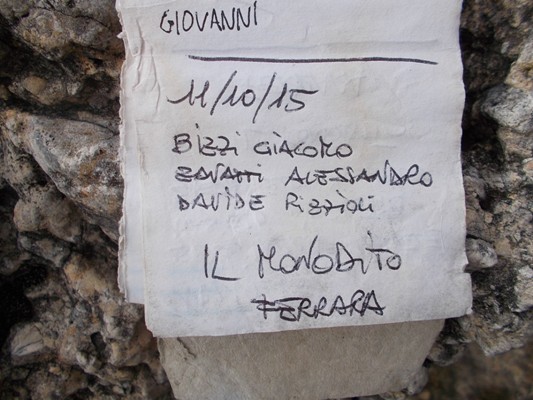 GIOVANNI
11/10/15
BIZZI GIACOMO
ZAVATTI ALESSANDRO
DAVIDE RIZZIOLI
IL MONODITO
FERRARA